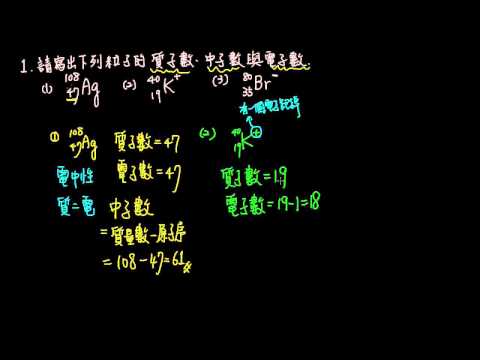 1. 請寫出下列粒子的質子數、中子數與電子數.
(1) ¹⁰⁸₄₇Ag (2) ⁴⁰₁₉K⁺ (3) ⁸⁰₃₅Br⁻
(1) ¹⁰⁸₄₇Ag 質子數=47
電中性 電子數=47
質=電 中子數
=質量數-原子序
=108-47=61
有一個電子
(2) ⁴⁰₁₉K⁺
質子數=19
電子數=19-1=18